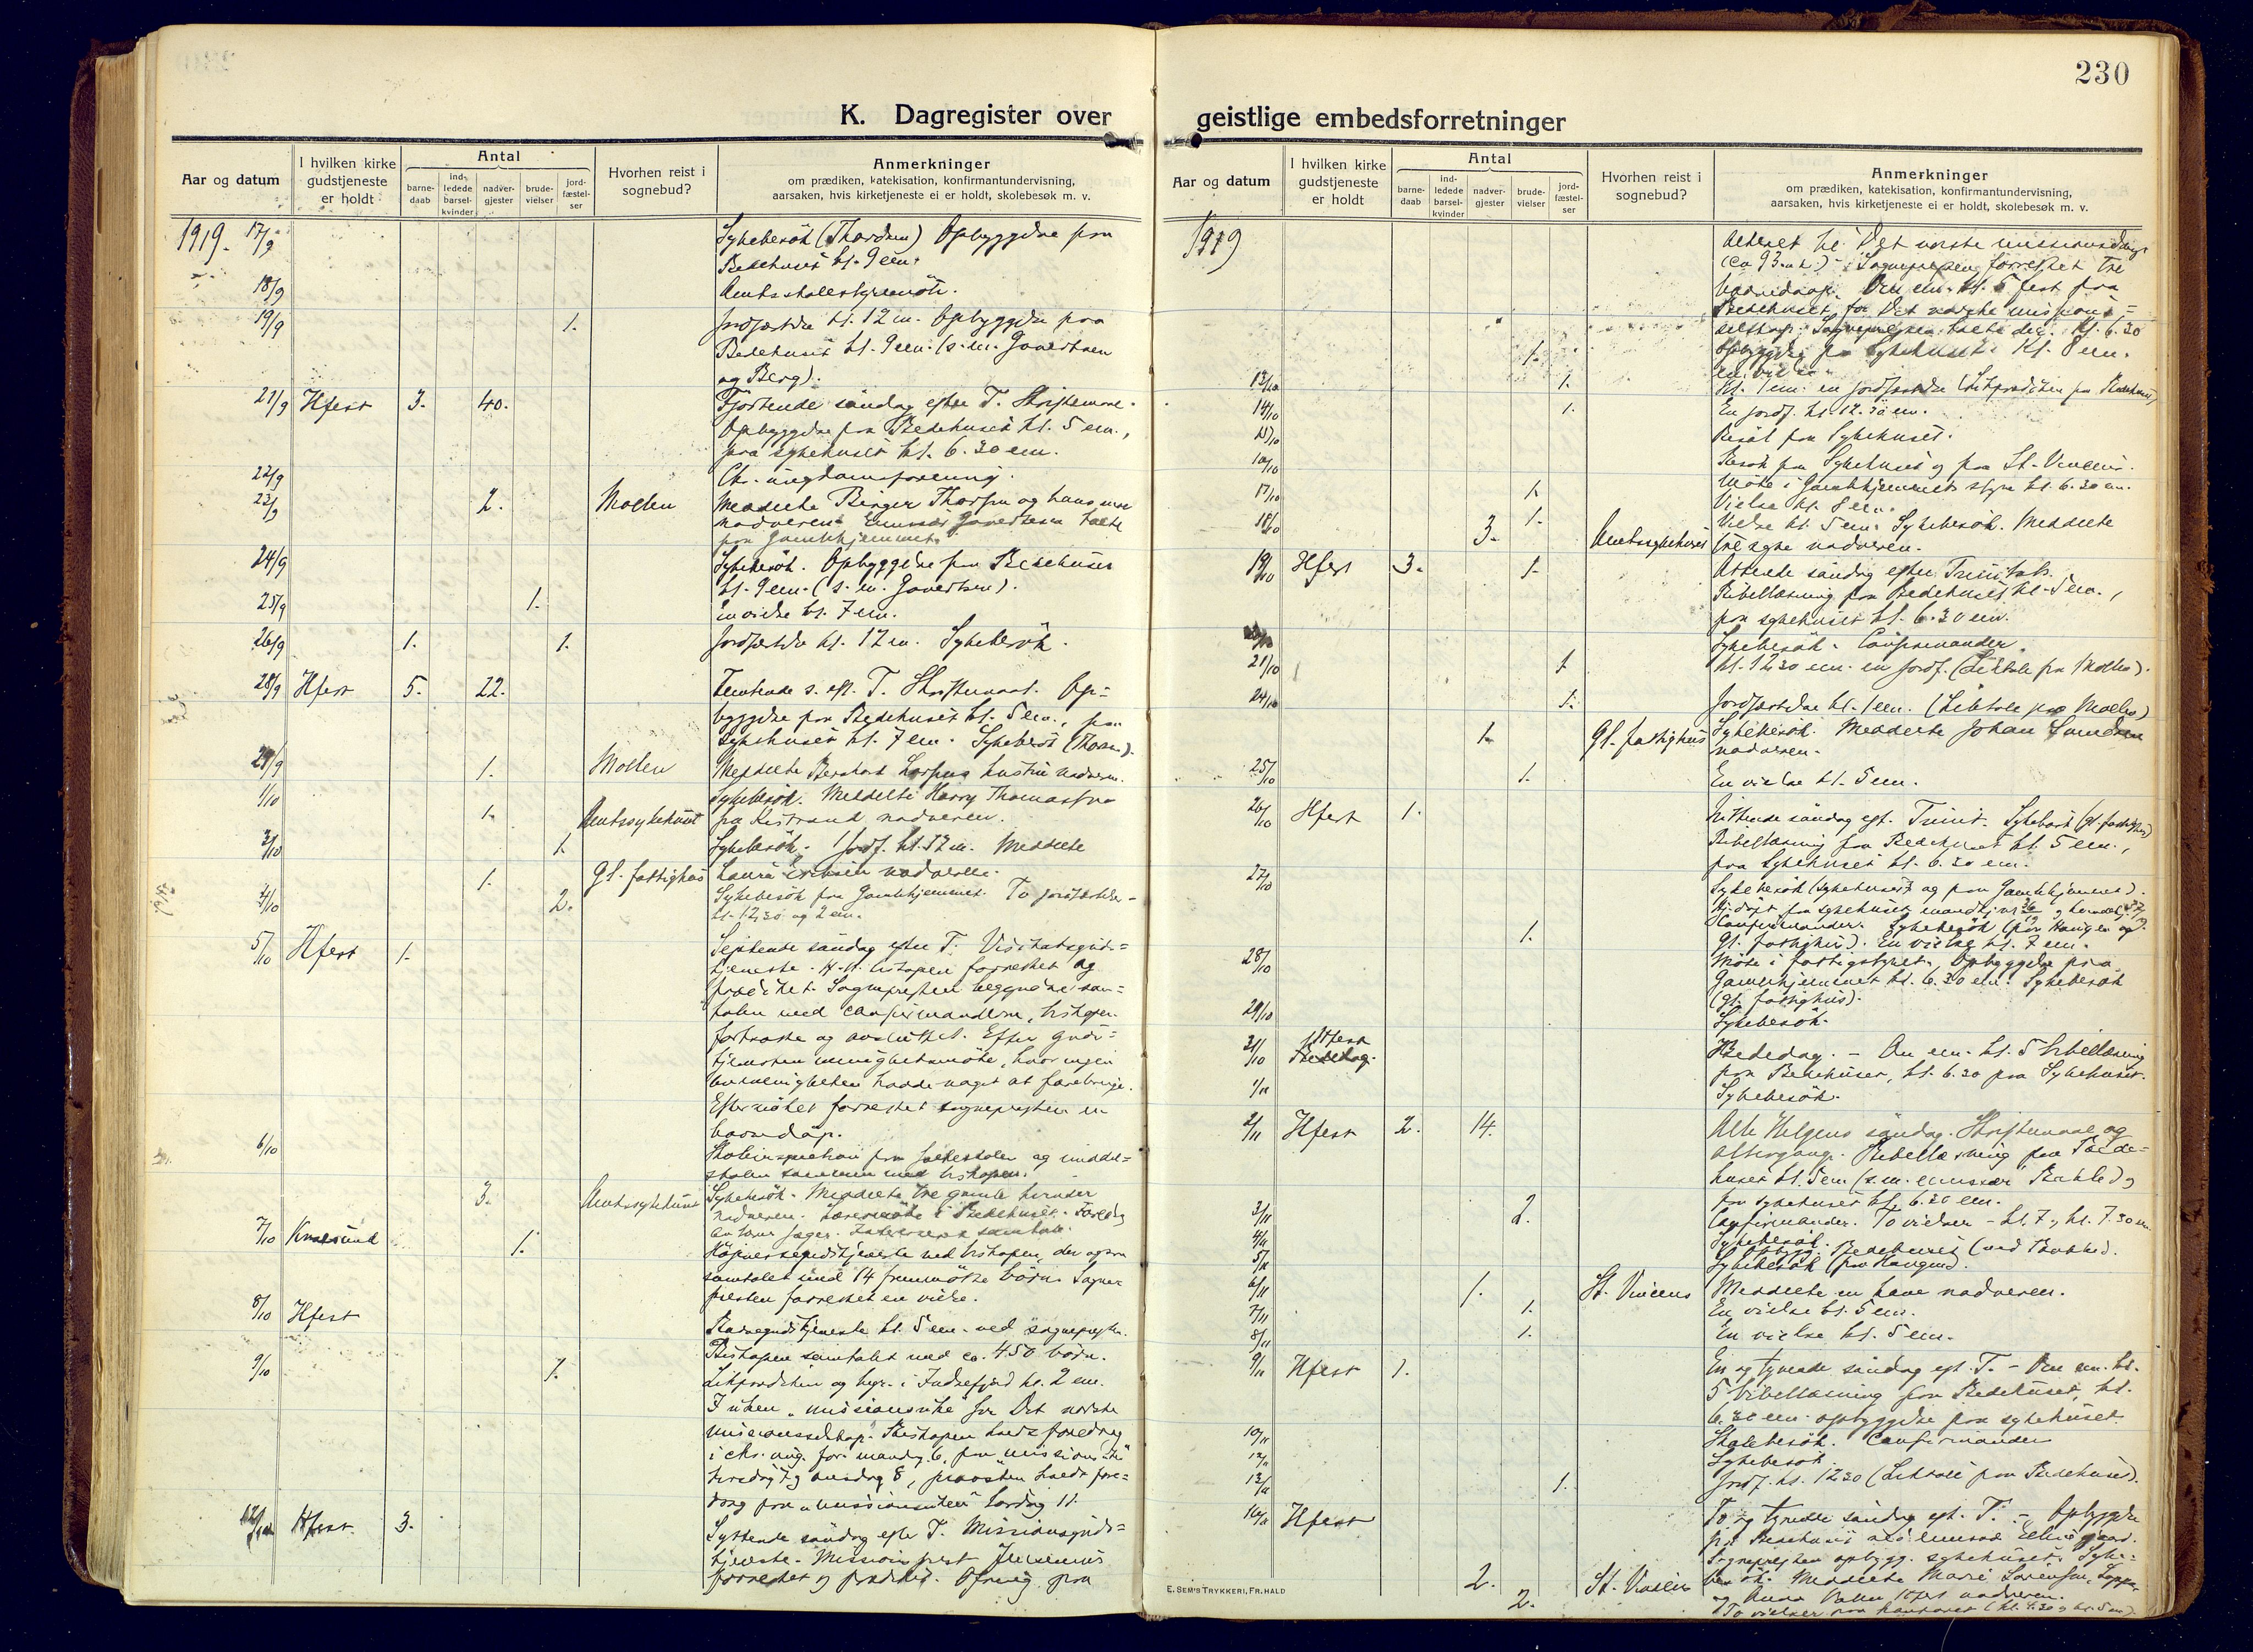 230
K. Dagregister over
Aar og datum
I hvilken kirke gudstjeneste er holdt
Antal
barne-daab
ind-ledede barsel-kvinder
nadver-gjester
brude-vielser
jord-fæstel-ser
Hvorhen reist i sognebud?
Anmerkninger
om prædiken, katekisation, konfirmantundervisning,
aarsaken, hvis kirketjeneste ei er holdt, skolebesøk m. v.
1919. 17/9 Sykebesök (Thordsen) Opbyggelse paa
Bedehuset kl. 9 em.
18/9 Amtsskolestyremöte.
19/9 1. Jordfæstelse kl. 12 m. Opbyggelse paa
Bedehuset kl. 9 em. (s. m. Gavertsen
og Berg).
21/9 Hfest 3. 40. Fjortende söndag efter T. Skriftemaal.
Opbyggelse paa Bedehuset kl. 5 em.,
paa sykehuset kl. 6.30 em.
22/9 Chr. ungdomsforening.
23/9 2. Mollen Meddelte Birger Thorsen og hans mor
nadveren.
paa Gamlehjemmet.
24/9 Sykebesök. Opbyggelse paa Bedehuset
kl. 9 em. (s. m. Gavertsen).
25/9 1. En vielse kl. 7 em.
26/9 1. 1. Jordfæstelse kl. 12 m. Sykebesök.
28/9 Hfest 5. 22. Femtende s. eft. T. Skriftemaal. Op=
byggelse paa Bedehuset kl. 5 em., paa
sykehuset kl. 7 em. Sykebesök
29/9 1. Mollen Meddelte hustru nadveren.
1/10 1. Amtssykehuset Sykebesök. Meddelte Harry Thomassen
fra Kistrand nadveren.
3/10 1. Sykebesök. 1 Jordf. kl. 12 m. Meddelte
1. Gl. fattighus Laura Eriksen nadveren.
4/10 2. Sykebesök paa Gamlehjemmet. To jordfæstelser
kl. 12.30 og 2 em.
5/10 Hfest 1. Sekstende söndag efter T. Visitatsguds=
tjeneste. H. h. biskopen forrettet og
prædiket. Sognepresten begyndte sam=
talen med confirmanderne, biskopen
fortsatte og avsluttet. Efter guds=
tjenesten menighetsmöte, hvor ingen
av menigheten hadde noget at forebringe.
Efter mötet forrettet sognepresten en
barnedaap.
6/10 Skoleinspektion paa folkeskolen og middel=
skolen sammen med biskopen.
3. Amtssykehuset Sykebesök. Meddelte tre gamle kvinder
nadveren. Lærermöte i Bedehuset. Foredrag
7/10 Kvalsund 1. Höimessegudstjeneste ved biskopen, der ogsaa
samtalet med 14 fremmötte börn. Sogne=
presten forrettet en vielse.
8/10 Hfest Barnegudstjeneste kl. 5 em. ved sognepresten.
Biskopen samtalet med ca. 450 börn.
9/10 1. Likprædiken og begr. i Indrefjord kl. 2 em.
I uken "missionsuke" for Det norske
missionsselskap. Biskopen holdt foredrag
i chr. ung. for. mandag 6, paa missions
tirsdag 7 og onsdag 8, provsten holdt fore=
drag paa "missionsuken" lördag 11.
12/10 Hfest. 3. Syttende söndag efter T. Missionsguds=
tjeneste. Missionsprest
forrettet og prædiket. Ofring paa
geistlige embedsforretninger
Aar og datum
I hvilken kirke gudstjeneste er holdt
Antal
barne-daab
ind-ledede barsel-kvinder
nadver-gjester
brude-vielser
jord-fæstel-ser
Hvorhen reist i sognebud?
Anmerkninger
om prædiken, katekisation, konfirmantundervisning,
aarsaken, hvis kirketjeneste ei er holdt, skolebesøk m. v.
1919 alteret til Det norske missionsselskap
(ca 93 m.) Sognepresten forrettet tre
barnedaap. Den em. kl. 5 fest paa
Bedehuset for Det norske missions=
selskap. Sognepresten talte der. Kl. 6.30
opbyggelse paa Sykehuset. Kl. 8 em.
1. en vielse.
13/10 1. Kl. 1 em. en jordfæstelse (Likprædiken paa Bedehuset)
14/10 1. En jordf. kl. 12.30 em.
15/10 Besök paa Sykehuset.
16/10 Besök paa Sykehuset og paa St. Vincens.
Möte i Gamlehjemmets styre kl. 6.30 em.
17/10 1. Vielse kl. 8 em.
18/10 3. 1. Amtssykehuset Vielse kl. 5 em. Sykebesök. Meddelte
tre syke nadveren.
19/10 Hfest 3. 1. Attende söndag efter Trinitatis.
Bibellæsning paa Bedehuset kl. 5 em.,
paa sykehuset kl. 6.30 em.
Sykebesök. Confirmander.
21/10 1 Kl. 12.30 em. en jordf. (Liktale paa Mollen).
24/10 1. Jordfæstelse kl. 1 em. (Liktale paa Mollen)
1. Gl. fattighus Sykebesök. Meddelte Johan
nadveren.
25/10 1. En vielse kl. 5 em.
26/10 Hfest 1. Nittende söndag eft. Trinit. Sykebesök (gl. fattighus)
Bibellæsning paa Bedehuset kl. 5 em.,
paa Sykehuset kl. 6.30 em.
27/10 Sykebesök (Sykehuset og paa Gamlehjemmet).
1. Confirmander. Sykebesök
Gl. fattighus). En vielse kl. 7 em.
28/10 Möte i fattigstyret. Opbyggelse paa
Gamlehjemmet kl. 6.30 em. Sykebesök
(gl. fattighus).
29/10 Sykebesök.
31/10 Hfest Bededag. – Den em. kl. 5 bibellæsning
paa Bedehuset, kl. 6.30 paa Sykehuset.
1/11 Sykebesök.
2/11 Hfest 2. 14. Alle Helgens söndag. Skriftemaal og
altergang. Bibellæsning paa Bede=
huset kl. 5 em. (s. m. emissær Bakled og
paa sykehuset kl. 6.30 em.
3/11 2. Confirmander. To vielser – kl. 7 og kl. 7.30 em.
4/11 Sykebesök.
5/11 Opbygg. Bedehuset (ved Bakled).
Sykebesök
6/11 1. St. Vincens Meddelte en nadveren.
7/11 1. En vielse kl. 5 em.
8/11 1. En vielse kl. 5 em.
9/11 Hfest 1. En og tyvende söndag eft. T. – Den em. kl.
5 bibellæsning paa Bedehuset, kl.
6.30 em. opbyggelse paa sykehuset.
10/11 Skolebesök. Confirmander
12/11 Sykebesök.
13/11 1. Jordf. kl. 12.30 (Liktale paa Bedehuset).
16/11 Hfest To og tyvende söndag eft. T. – Opbyggelse
paa Bedehuset ved emissær
Sognepresten opbygg. sykehuset. Syke=
2. St. Vincens besök. Meddelte Marie Sörensen, Loppa,
og Anna Hfest nadveren.
2. To vielser paa kontoret (kl. 4.30 og kl. 5 em.)
E. SEM'S TRYKKERI, FR.HALD